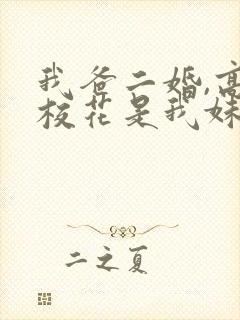 我爸二婚,高
校花是我妹
二之夏